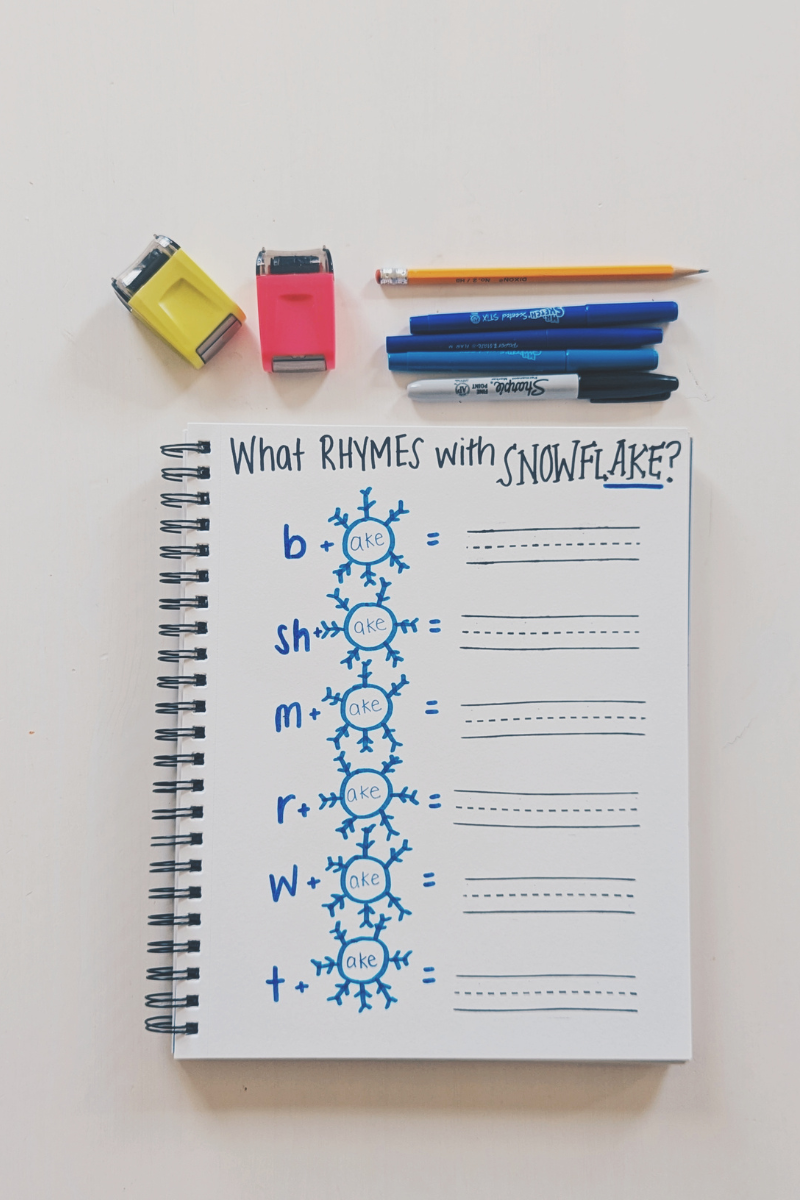 What RHYMES with SNOWFLAKE?
b + ake =
sh + ake =
m + ake =
r + ake =
w + ake =
t + ake =
Sharpie
FINE POINT